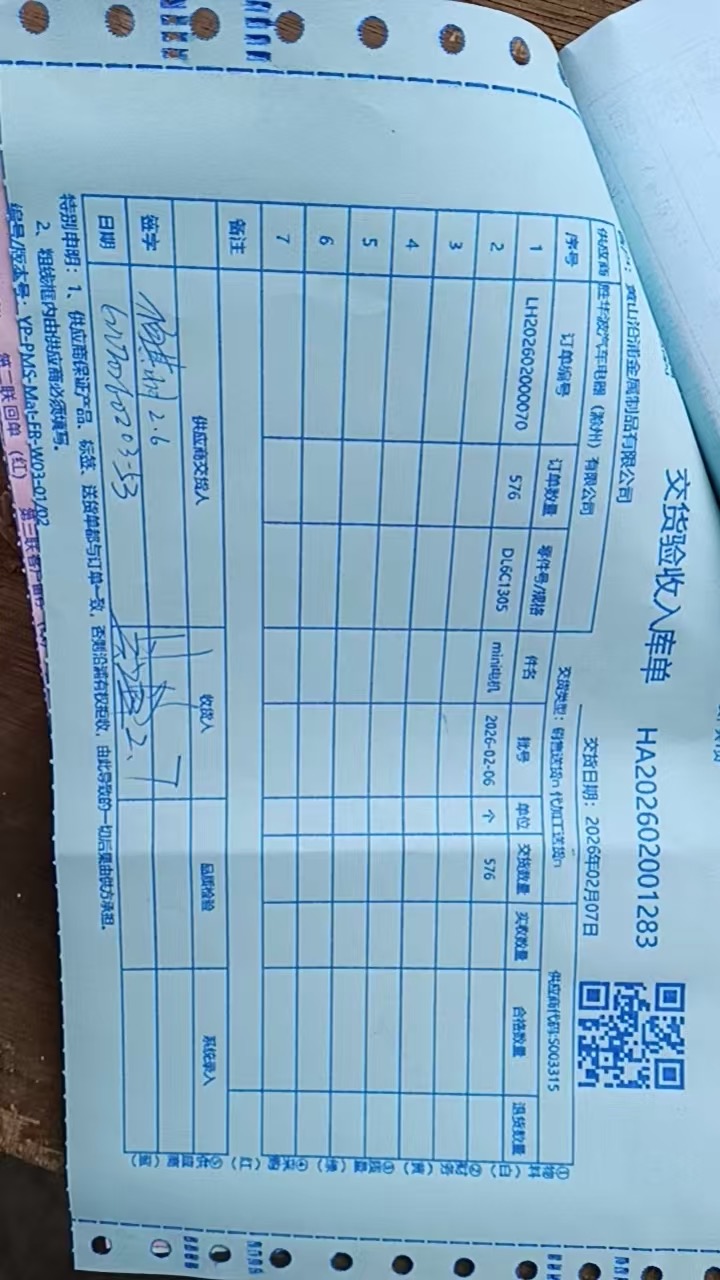 交货验收入库单 HA202602001283
黄山沿浦金属制品有限公司
交货日期：2026年02月07日
供应商 胜华波汽车电器（滁州）有限公司
交货类型：销售送货n 代加工送货n
供应商代码:S003315
序号 订单编号 订单数量 零件号/规格 件名 批号 单位 交货数量 实收数量 合格数量 退货数量
1 LH202602000070 576 DL6C1305 mini电机 2026-02-06 个 576
2
3
4
5
6
7
备注
供应商交货人 收货人 品质检验 系统录入
签字 2.6 2.7
日期
特别申明：1、供应商保证产品、标签、送货单都与订单一致，否则沿浦有权拒收，由此导致的一切后果由供方承担。
2、粗线框内由供应商必须填写。
编号/版本号：YP-PMS-Mat-FR-W03-01/02
第二联回单（红）
①物料（白）②财务（黄）③质量（绿）④采购（红）⑤供应商（蓝）